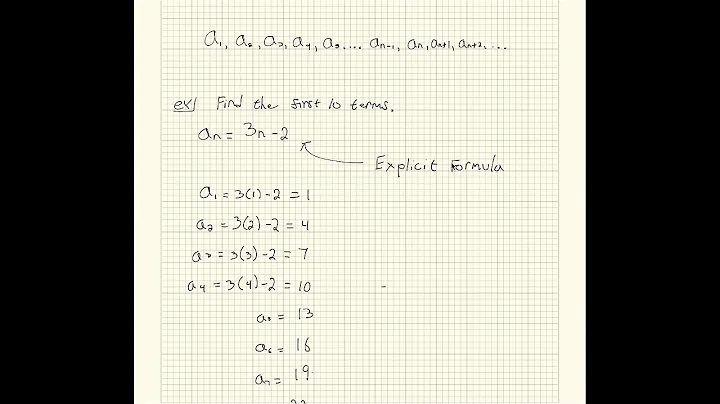 a₁, a₂, a₃, a₄, a₅.... aₙ₋₁, aₙ, aₙ₊₁, aₙ₊₂, ...
ex) Find the first 10 terms.
aₙ = 3n - 2
Explicit Formula
a₁ = 3(1) - 2 = 1
a₂ = 3(2) - 2 = 4
a₃ = 3(3) - 2 = 7
a₄ = 3(4) - 2 = 10
a₅ = 13
a₆ = 16
a₇ = 19